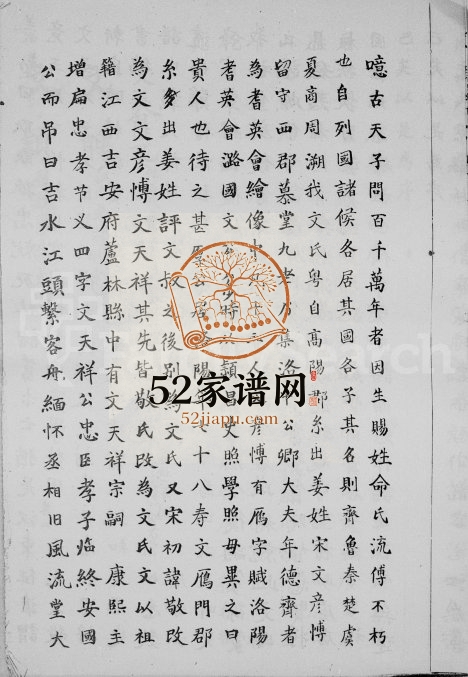 噫古天子問百千萬年者因生賜姓命氏流傳不朽
也自列國諸侯各居其國各子其名則齊魯秦楚虞
夏商周溯我文氏粤自高陽郡系出姜姓宋文彦愽
留守西郡慕堂九老乃集洛 公卿大夫年德齊者
為耆英會繪像 人 彦愽有雁字賦洛陽
耆英會潞國文 時 頴昌史照學照母異之曰
貴人也待之甚 陽 十八寿文雁門郡
糸多出姜姓評文叔 之後别為文氏又宋初諱敬改
為文文彦愽文天祥其先皆敬氏改為文氏文以祖
籍江西吉安府蘆林縣中有文天祥宗嗣 康熙主
增扁忠孝节义四字文天祥公忠臣孝子临終安國
公而吊曰吉水江頭繫客舟緬怀丞相旧風流堂大
52家谱网
52jiapu.com